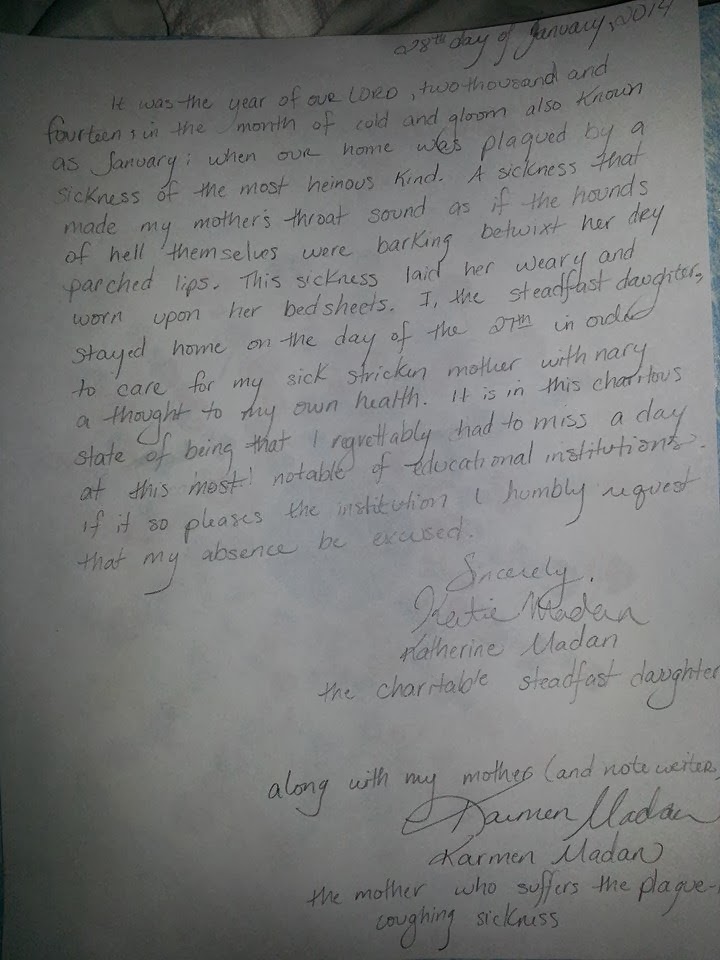 28th day of January, 2014
It was the year of our LORD, two thousand and
fourteen; in the month of cold and gloom also known
as January; when our home was plagued by a
sickness of the most heinous kind. A sickness that
made my mother's throat sound as if the hounds
of hell themselves were barking betwixt her dry
parched lips. This sickness laid her weary and
worn upon her bedsheets. I, the steadfast daughter,
stayed home on the day of the 27th in order
to care for my sick stricken mother with nary
a thought to my own health. It is in this charitous
state of being that I regrettably had to miss a day
at this most notable of educational institutions.
If it so pleases the institution I humbly request
that my absence be excused.
Sincerely,
Katie Madan
Katherine Madan
the charitable steadfast daughter
along with my mother (and note writer)
Karmen Madan
Karmen Madan
the mother who suffers the plague-
coughing sickness